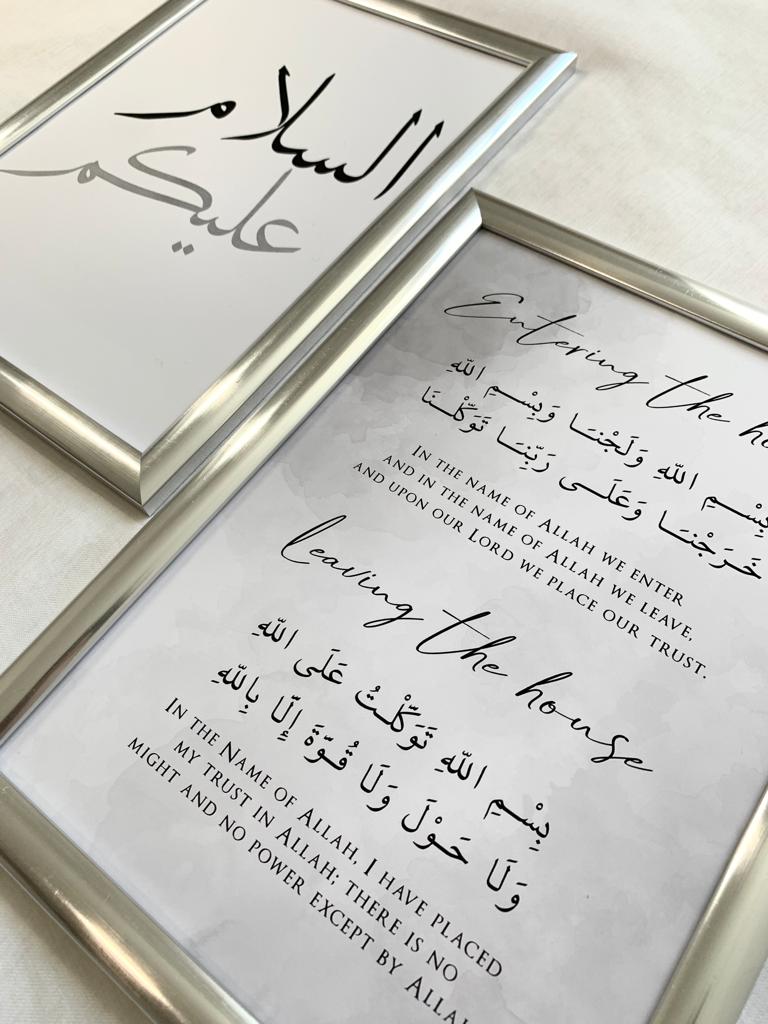 السلام
عليكم
Entering the
بِسْمِ اللّٰهِ وَلَجْنَـا وَبِسْـمِ اللّٰهِ
خَرَجْنَـا وَعَلَـى رَبِّنَـا تَوَكَّلْـنَا
In the name of Allah we enter
and in the name of Allah we leave,
and upon our Lord we place our trust.
leaving the house
بِسْمِ اللّٰهِ تَوَكَّلْـتُ عَلَى اللّٰهِ
وَلَا حَـوْلَ وَلَا قُـوَّةَ إِلَّا بِاللّٰهِ
In the Name of Allah, I have placed
my trust in Allah; there is no
might and no power except by Allah